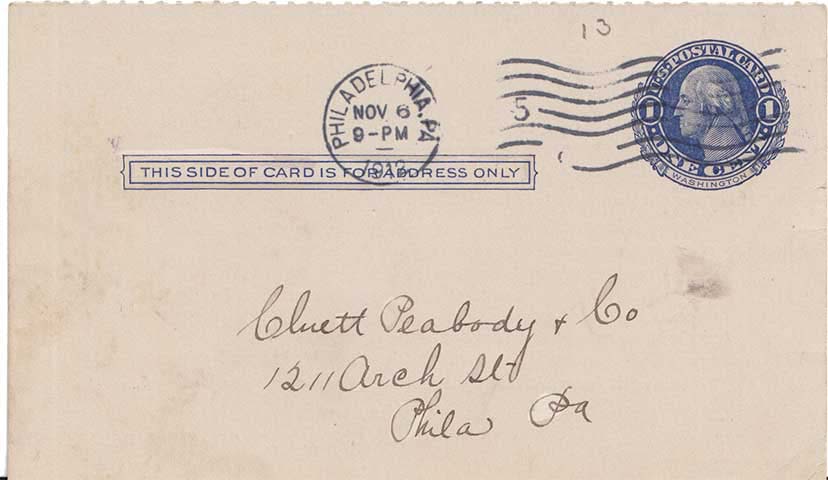 13
U.S. POSTAL CARD
1 1
ONE CENT
WASHINGTON
PHILADELPHIA, PA
NOV 6
9-PM
5
THIS SIDE OF CARD IS FOR ADDRESS ONLY
Cluett Peabody & Co
1211 Arch St
Phila Pa